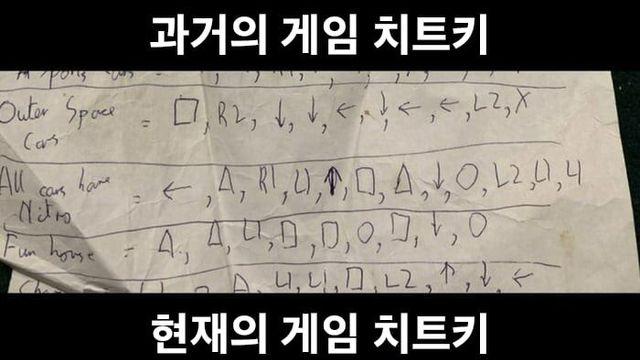 과거의 게임 치트키
Outer Space
Cars = □, R2, ↓, ↓, ←, ↓, ←, ←, L2, X
All cars have
Nitro = ←, △, R1, L1, ↑, □, △, ↓, O, L2, L1, L1
Fun house = △, △, L1, □, □, O, □, ↓, O
△, L1, L1, □, L2, ↑, ↓, ←
현재의 게임 치트키